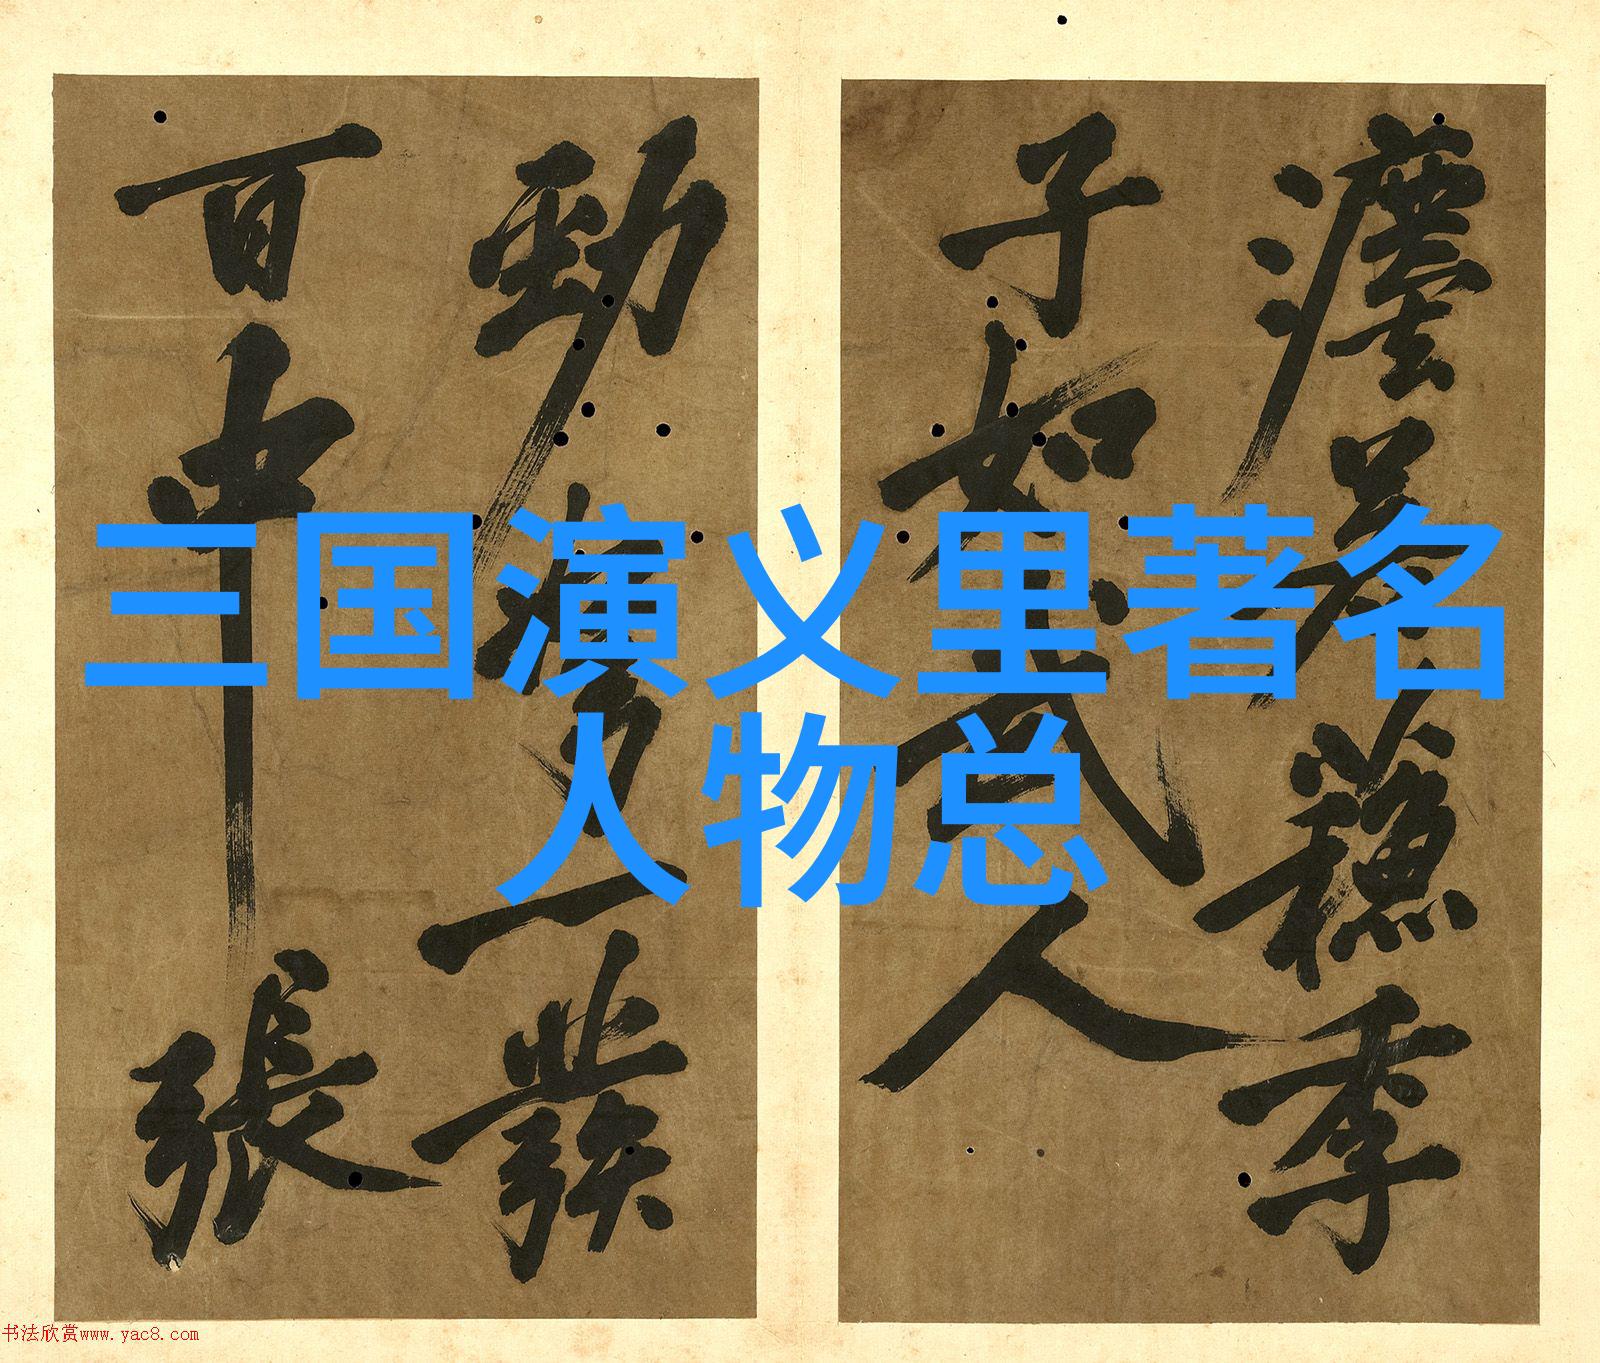 蘓季
子如
人
勁
一發
百中
張
三国演义里著名
人物总
书法欣赏www.yac8.com